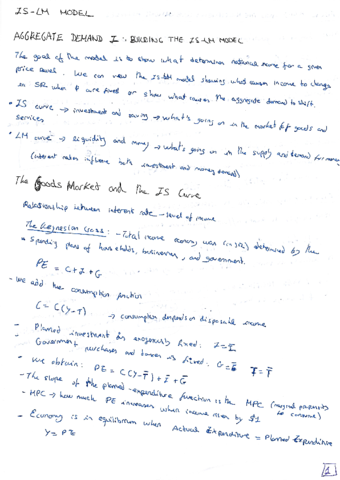 IS-LM MODEL
AGGREGATE DEMAND I: BUILDING THE IS-LM MODEL
The goal of the model is to show what determines national income for a given
price level. We can view the IS-LM model showing what causes income to change
in SR when P are fixed or show what causes the aggregate demand to shift.
• IS curve → investment and saving → what's going on in the market for goods and
services
• LM curve → liquidity and money → what's going on in the supply and demand for money
(interest rates influence both investment and money demand)
The Goods Market and the IS Curve
Relationship between interest rate - level of income
The Keynesian cross: - Total income economy was (in SR) determined by the
spending plans of households, businesses, and government.
PE = C+I+G
- we add the consumption function
C = C(Y-T) → consumption depends on disposable income
- Planned investment is exogenously fixed: I=Ī
- Government purchases and taxes is fixed: G=Ḡ T=T̄
- we obtain: PE = C(Y-T̄)+Ī+Ḡ
- The slope of the planned-expenditure function is the MPC (marginal propensity
to consume)
- MPC → how much PE increases when income rises by $1
- Economy is in equilibrium when Actual Expenditure = Planned Expenditure
Y = PE
1